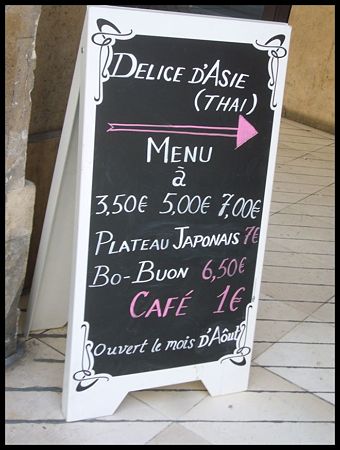 DELICE D'ASIE
(THAI)
MENU
à
3,50€ 5,00€ 7,00€
PLATEAU JAPONAIS 7€
BO-BUON 6,50€
CAFÉ 1€
OUVERT LE MOIS D'AÔUT